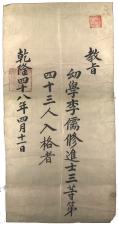 教旨
幼學李儒修進士三等第
四十三人入格者
乾隆四十八年四月十一日